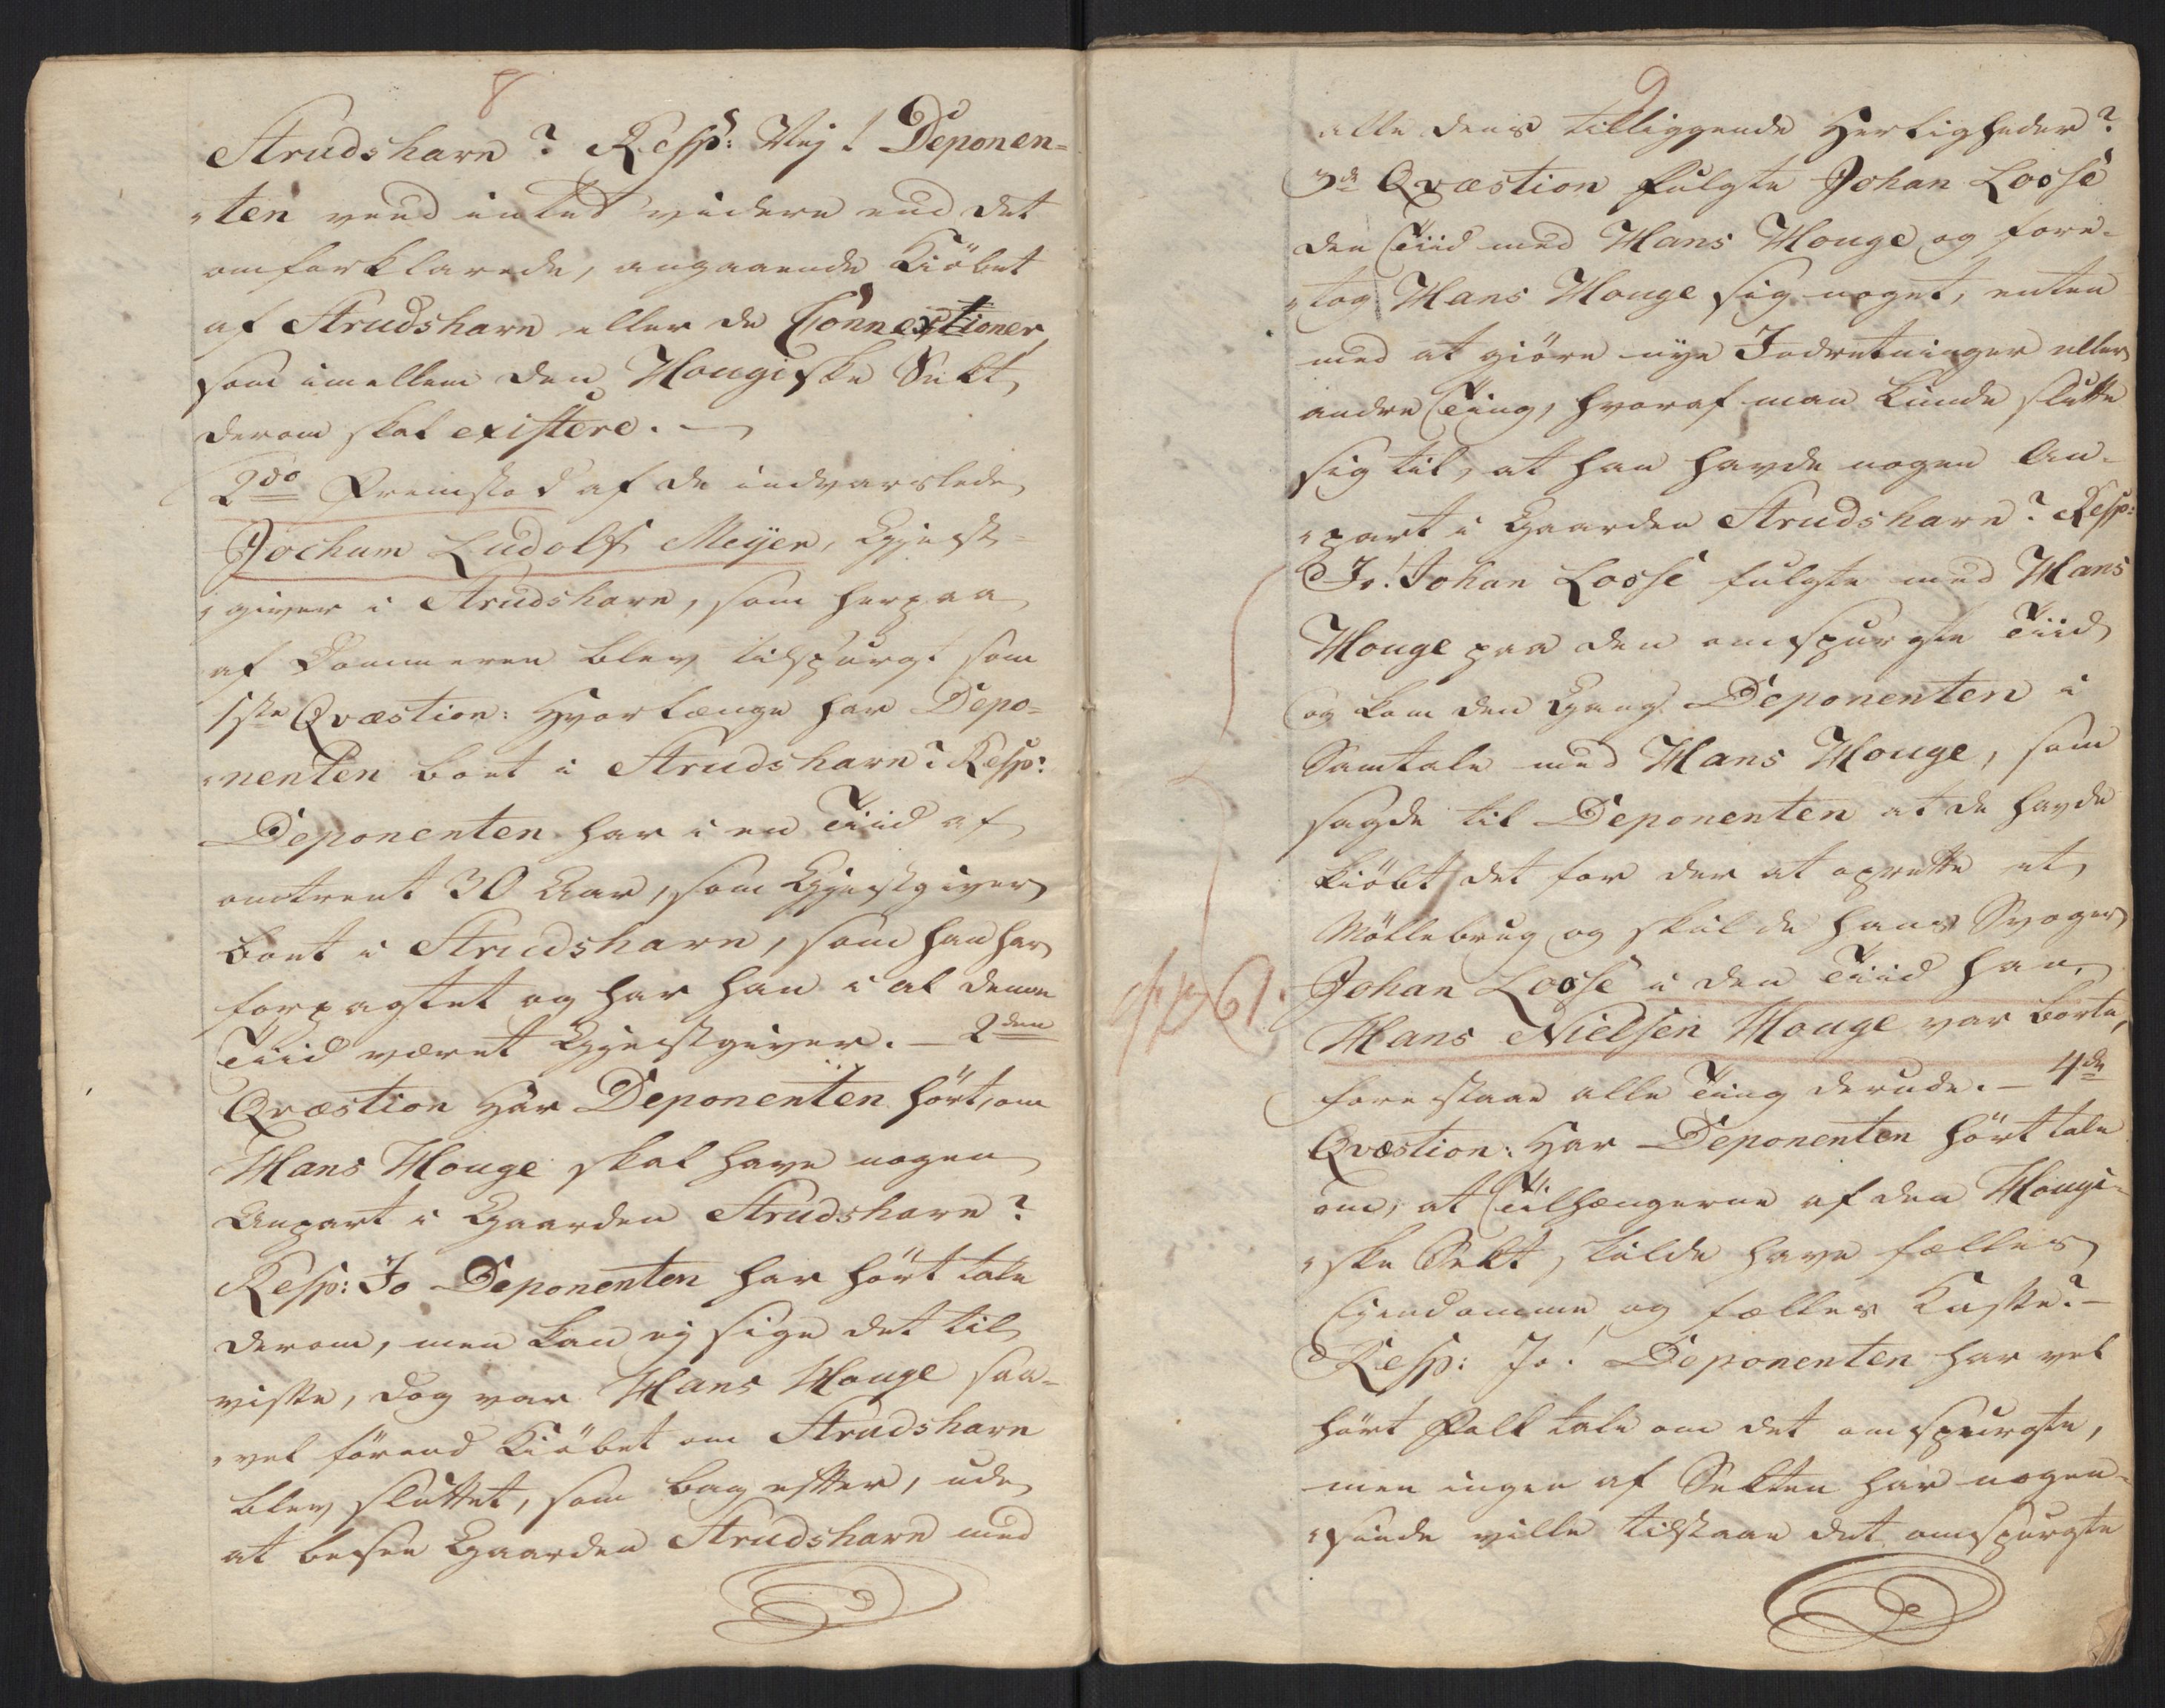 8
Strudshavn? Resp: Nej! Deponen=
"ten veed intet videre end det
omforklarede, angaaende Kiöbet
af Strudshavn eller de Connextioner,
som imellem den Hougiske Sekt,
derom skal existere. —
2do Fremstod af de indvarslede
Jochum Ludolf Meijer, Gjest=
"giver i Strudshavn, som herpaa
af Dommeren blev tilspurgt som
1ste Qvæstion: Hvorlænge har Depo=
"nenten boet i Strudshavn? Resp:
Deponenten har i en Tiid af
omtrent 30 Aar, som Gjestgiver
boet i Strudshavn, som han har
forpagtet og har han i al denne
Tiid været Gjestgiver. — 2den
Qvæstion Har Deponenten hört, om
Hans Houge skal have nogen
Anpart i Gaarden Strudshavn?
Resp: Jo Deponenten har hört tale
derom, men kan ej sige det til
visse, dog var Hans Houge saa=
"vel förend Kiöbet om Strudshavn
blev sluttet, som bag efter, ude
at besee Gaarden Strudshavn med
9
alle dens tilliggende Herligheder?
3de Qvæstion fulgte Johan Loose
den Tiid med Hans Houge og fore=
"tog Hans Houge sig noget, enten
med at giöre nye Indretninger eller
andre Ting, hvoraf man kunde slutte
sig til, at han havde nogen An=
"part i Gaarden Strudshavn? Resp:
Jo! Johan Loose fulgte med Hans
Houge paa den omspurgte Tiid
og kom den Gang Deponenten i
Samtale med Hans Houge, som
sagde til Deponenten at de havde
kiöbt det for der at oprette et
Möllebrug og skulde hans Svoger
Johan Loose i den Tiid han,
Hans Nielsen Houge var borte,
forestaae alle Ting derude. — 4de
Qvæstion: Har Deponenten hört tale
om, at Tilhængerne af den Hougi=
"ske Sekt, skulde have fælles
Eiendomme og fælles Kasse? —
Resp: Jo! Deponenten har vel
hört Folk tale om det omspurgte,
men ingen af Sekten har nogen=
"sinde ville tilstaae det omspurgte